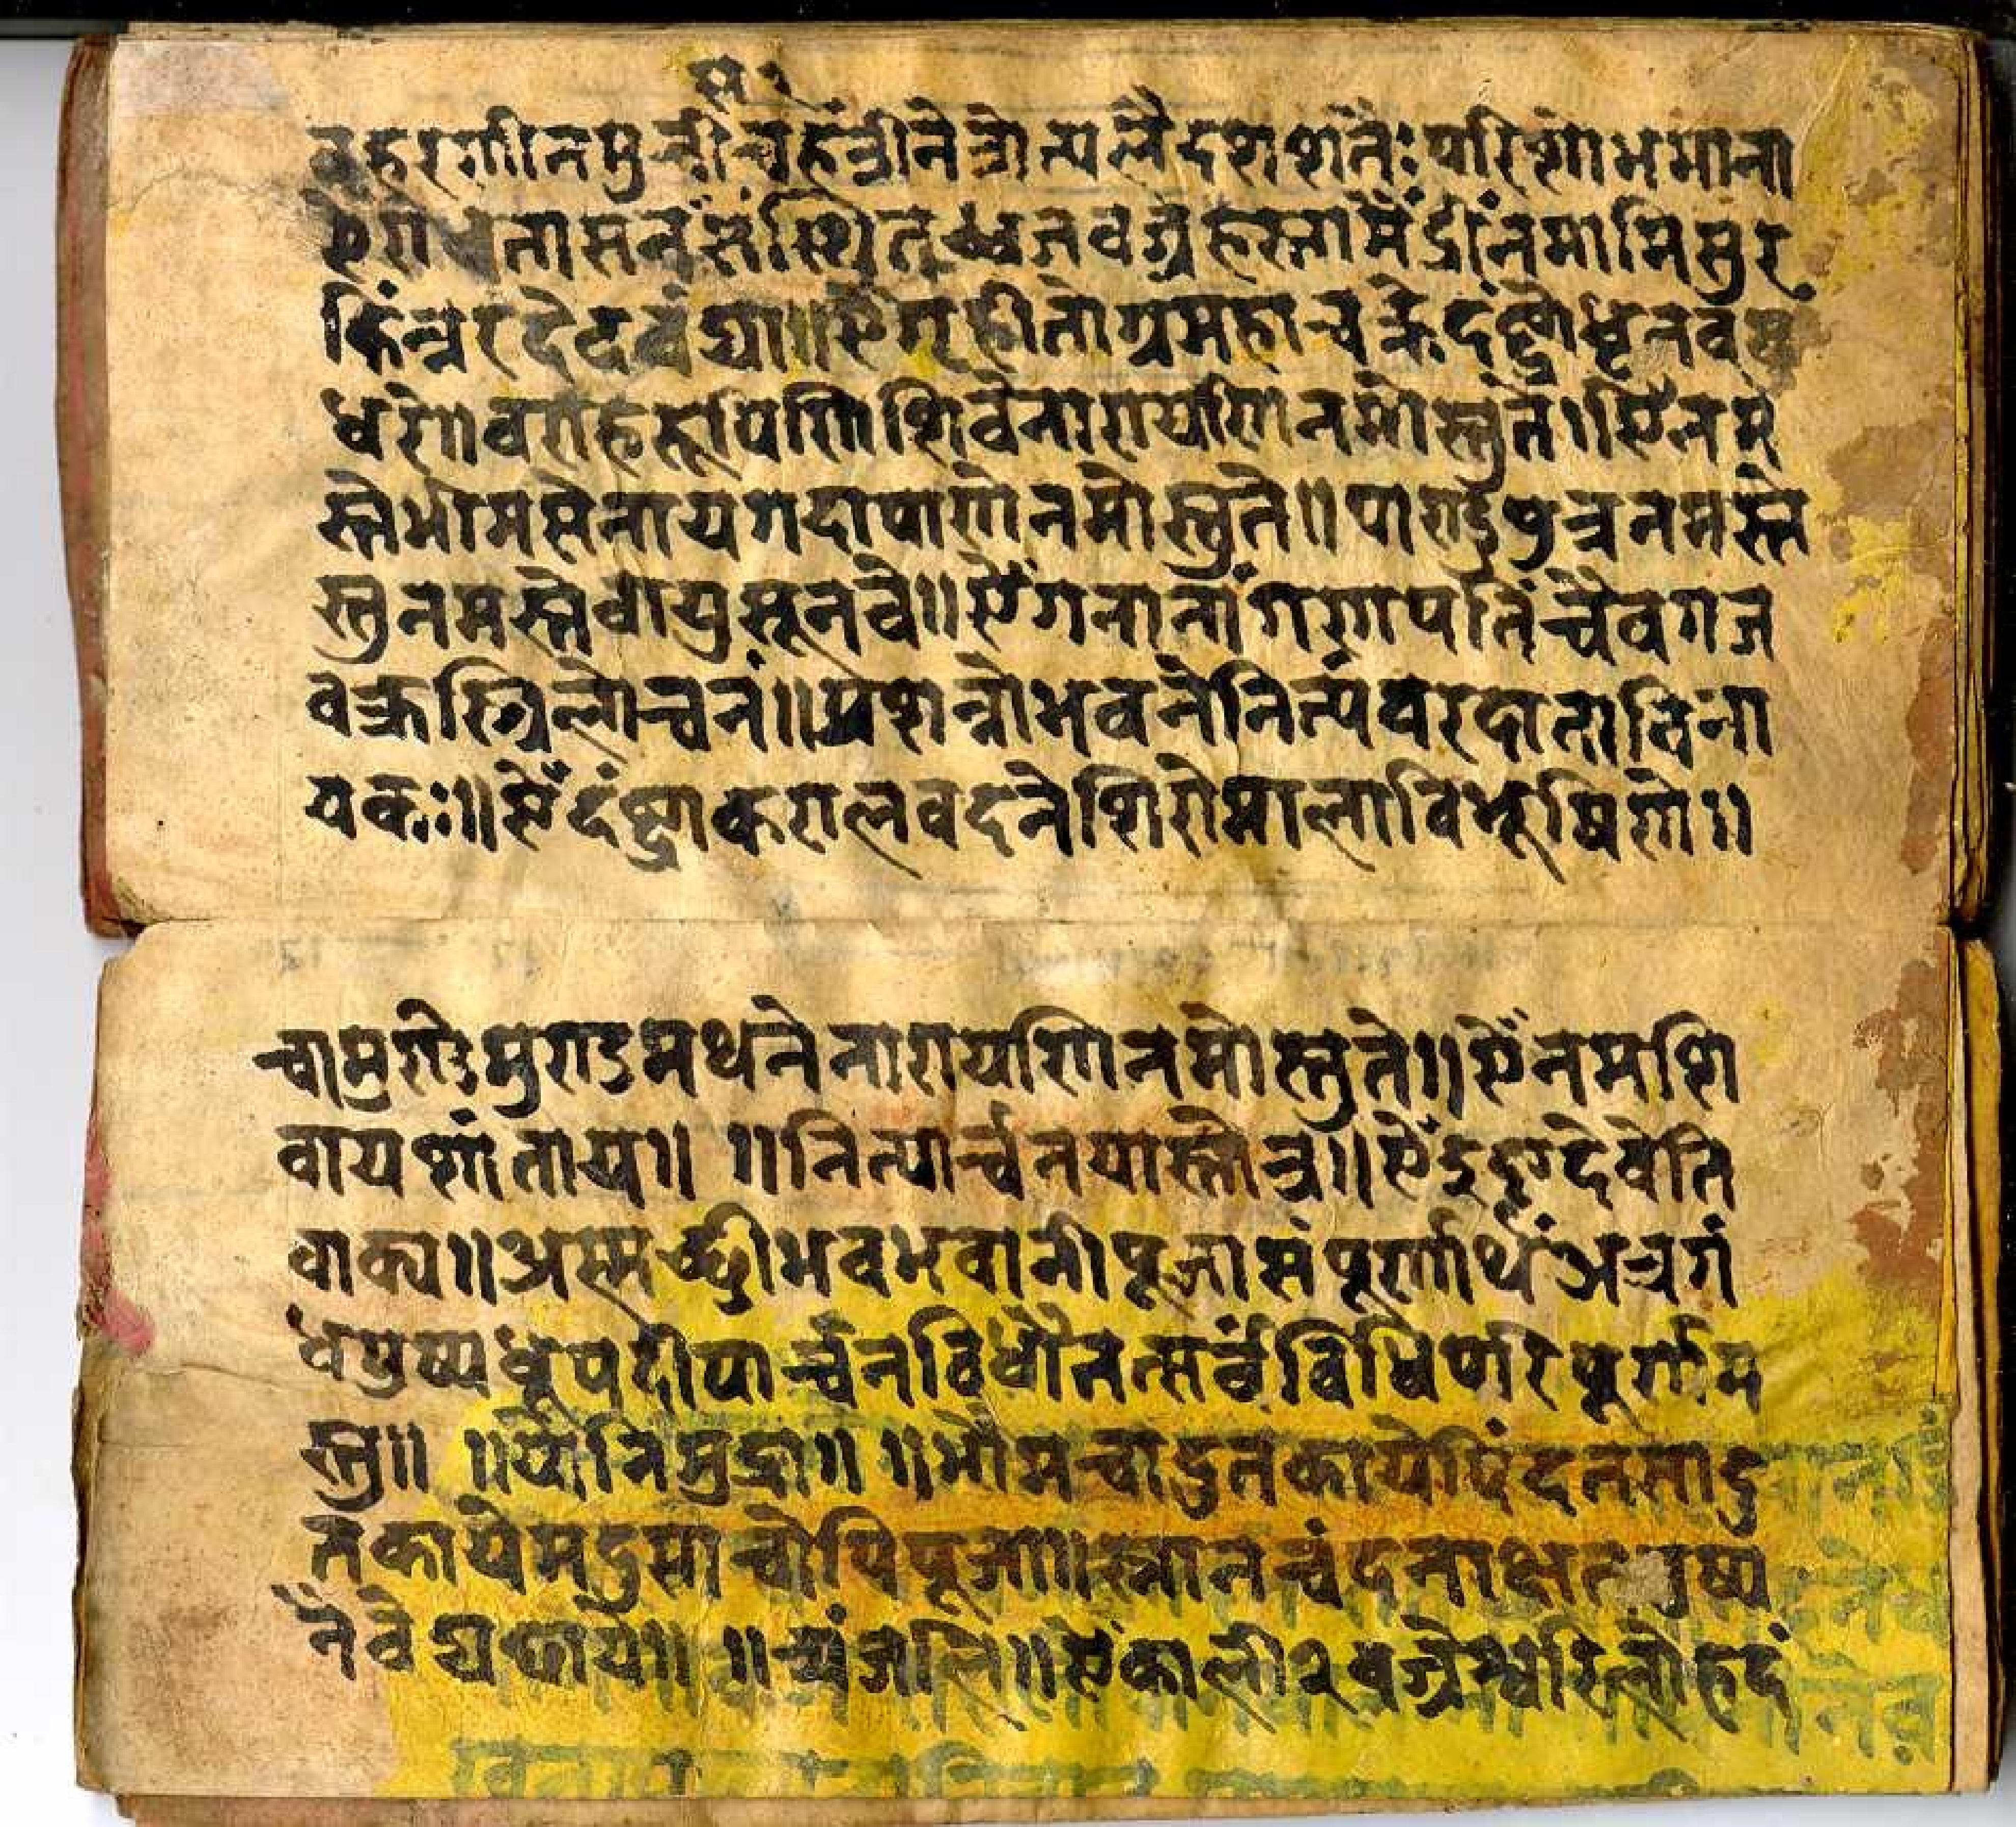 स
वृहरणीनमुचीचहंत्रीनेत्रोत्पलैदशशतैः परिशोभमाना
ऐरावतासनसंस्थितध्वजवज्रहस्तामैंद्रींनमामिसुर
किंन्नरदेववंद्या॥ ऐंगृहीतोग्रमहाचक्रेदंष्ट्रोधृतवसु
धरे॥ वराहरूपिणिशिवेनारायणिनमोस्तुते। ऐंनम
स्तेभीमसेनायगदापाणेनमोस्तुते॥ पाण्डुपुत्रनमस्ते
स्तुनमस्तेवायुसूनवे॥ ऐंगनानांगणपतिंचैवगज
वक्रस्त्रिलोचनं॥ प्रशन्नोभवनेनित्यंवरदाताविना
यकः॥ ऐंदंष्ट्राकरालवदनेशिरोमालाविभूषिणे॥
चामुण्डेमुण्डमथनेनारायणिनमोस्तुते॥ ऐंनमशि
वायशांताय॥ ॥नित्यार्चनयास्तोत्र॥ ऐंदुदृग्देवेति
वाक्य॥ अस्मच्छ्रीभवभवानीपूजासंपूर्णार्थंअत्रगं
धंपुष्पधूपदीपार्च्चनविधौतत्सर्वंविधिपरिपूर्णम
स्तु॥ ॥योनिमुद्रा॥ ॥भौमचाडुतकायेपिंदतसाडु
तकायेमदुसाचोपिपूजा॥ स्नानचंदनाक्षतपुष्प
नैवेद्यछाये॥ ॥अंजलि॥ ऐंकाली२वज्रेश्वरिलोहदं